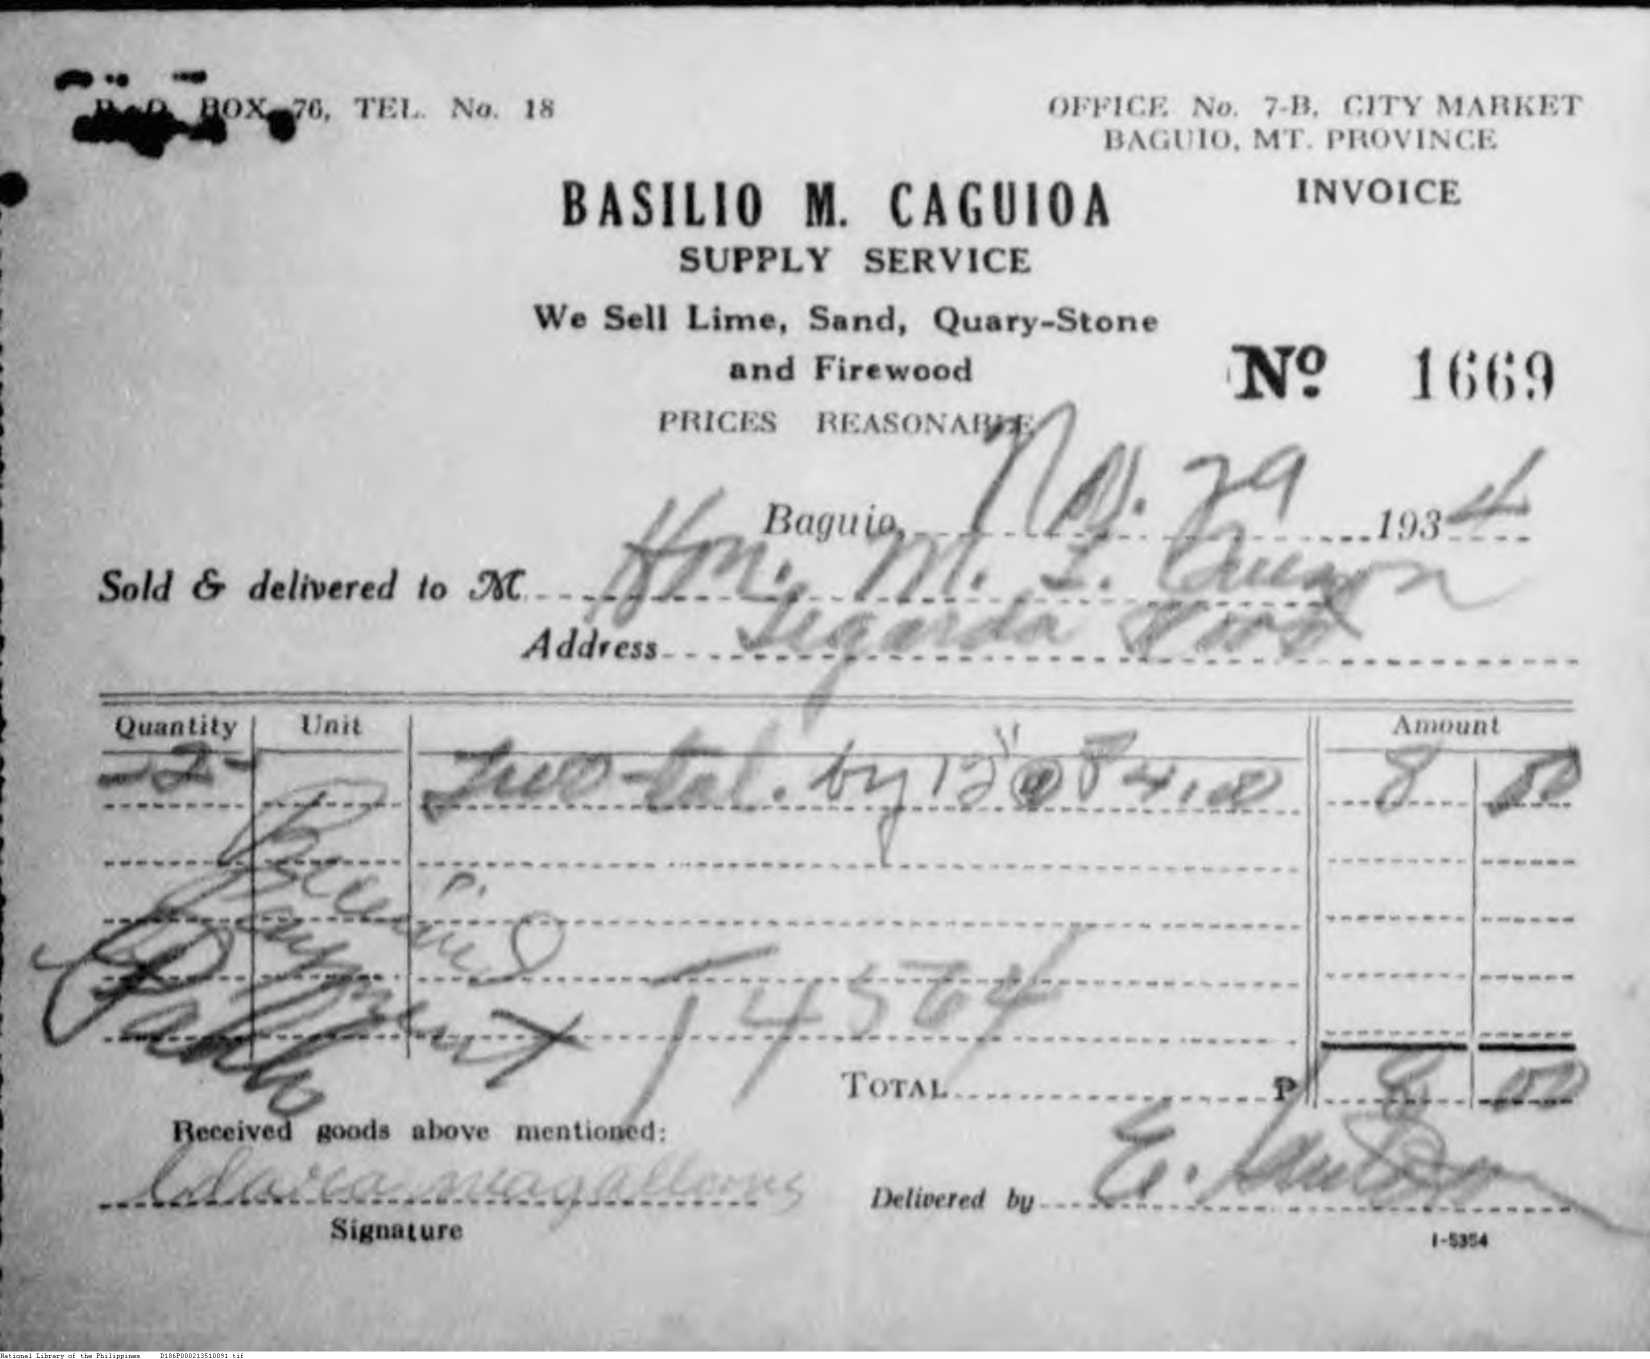 P. O. BOX 76, TEL. No. 18
OFFICE No. 7-B, CITY MARKET
BAGUIO, MT. PROVINCE
INVOICE
BASILIO M. CAGUIOA
SUPPLY SERVICE
We Sell Lime, Sand, Quary-Stone
and Firewood
PRICES REASONABLE
Nº 1669
Baguio, 29 1934
Sold & delivered to M Hon. M. L. Quezon
Address Legarda Road
Quantity Unit Amount
-2- by 12" @ ₱4.00 8 00
Received
Payment
P.
14564
TOTAL ₱ 8 00
Received goods above mentioned:
Signature
Delivered by E.
I-5354
National Library of the Philippines D186PD00213510091.tif